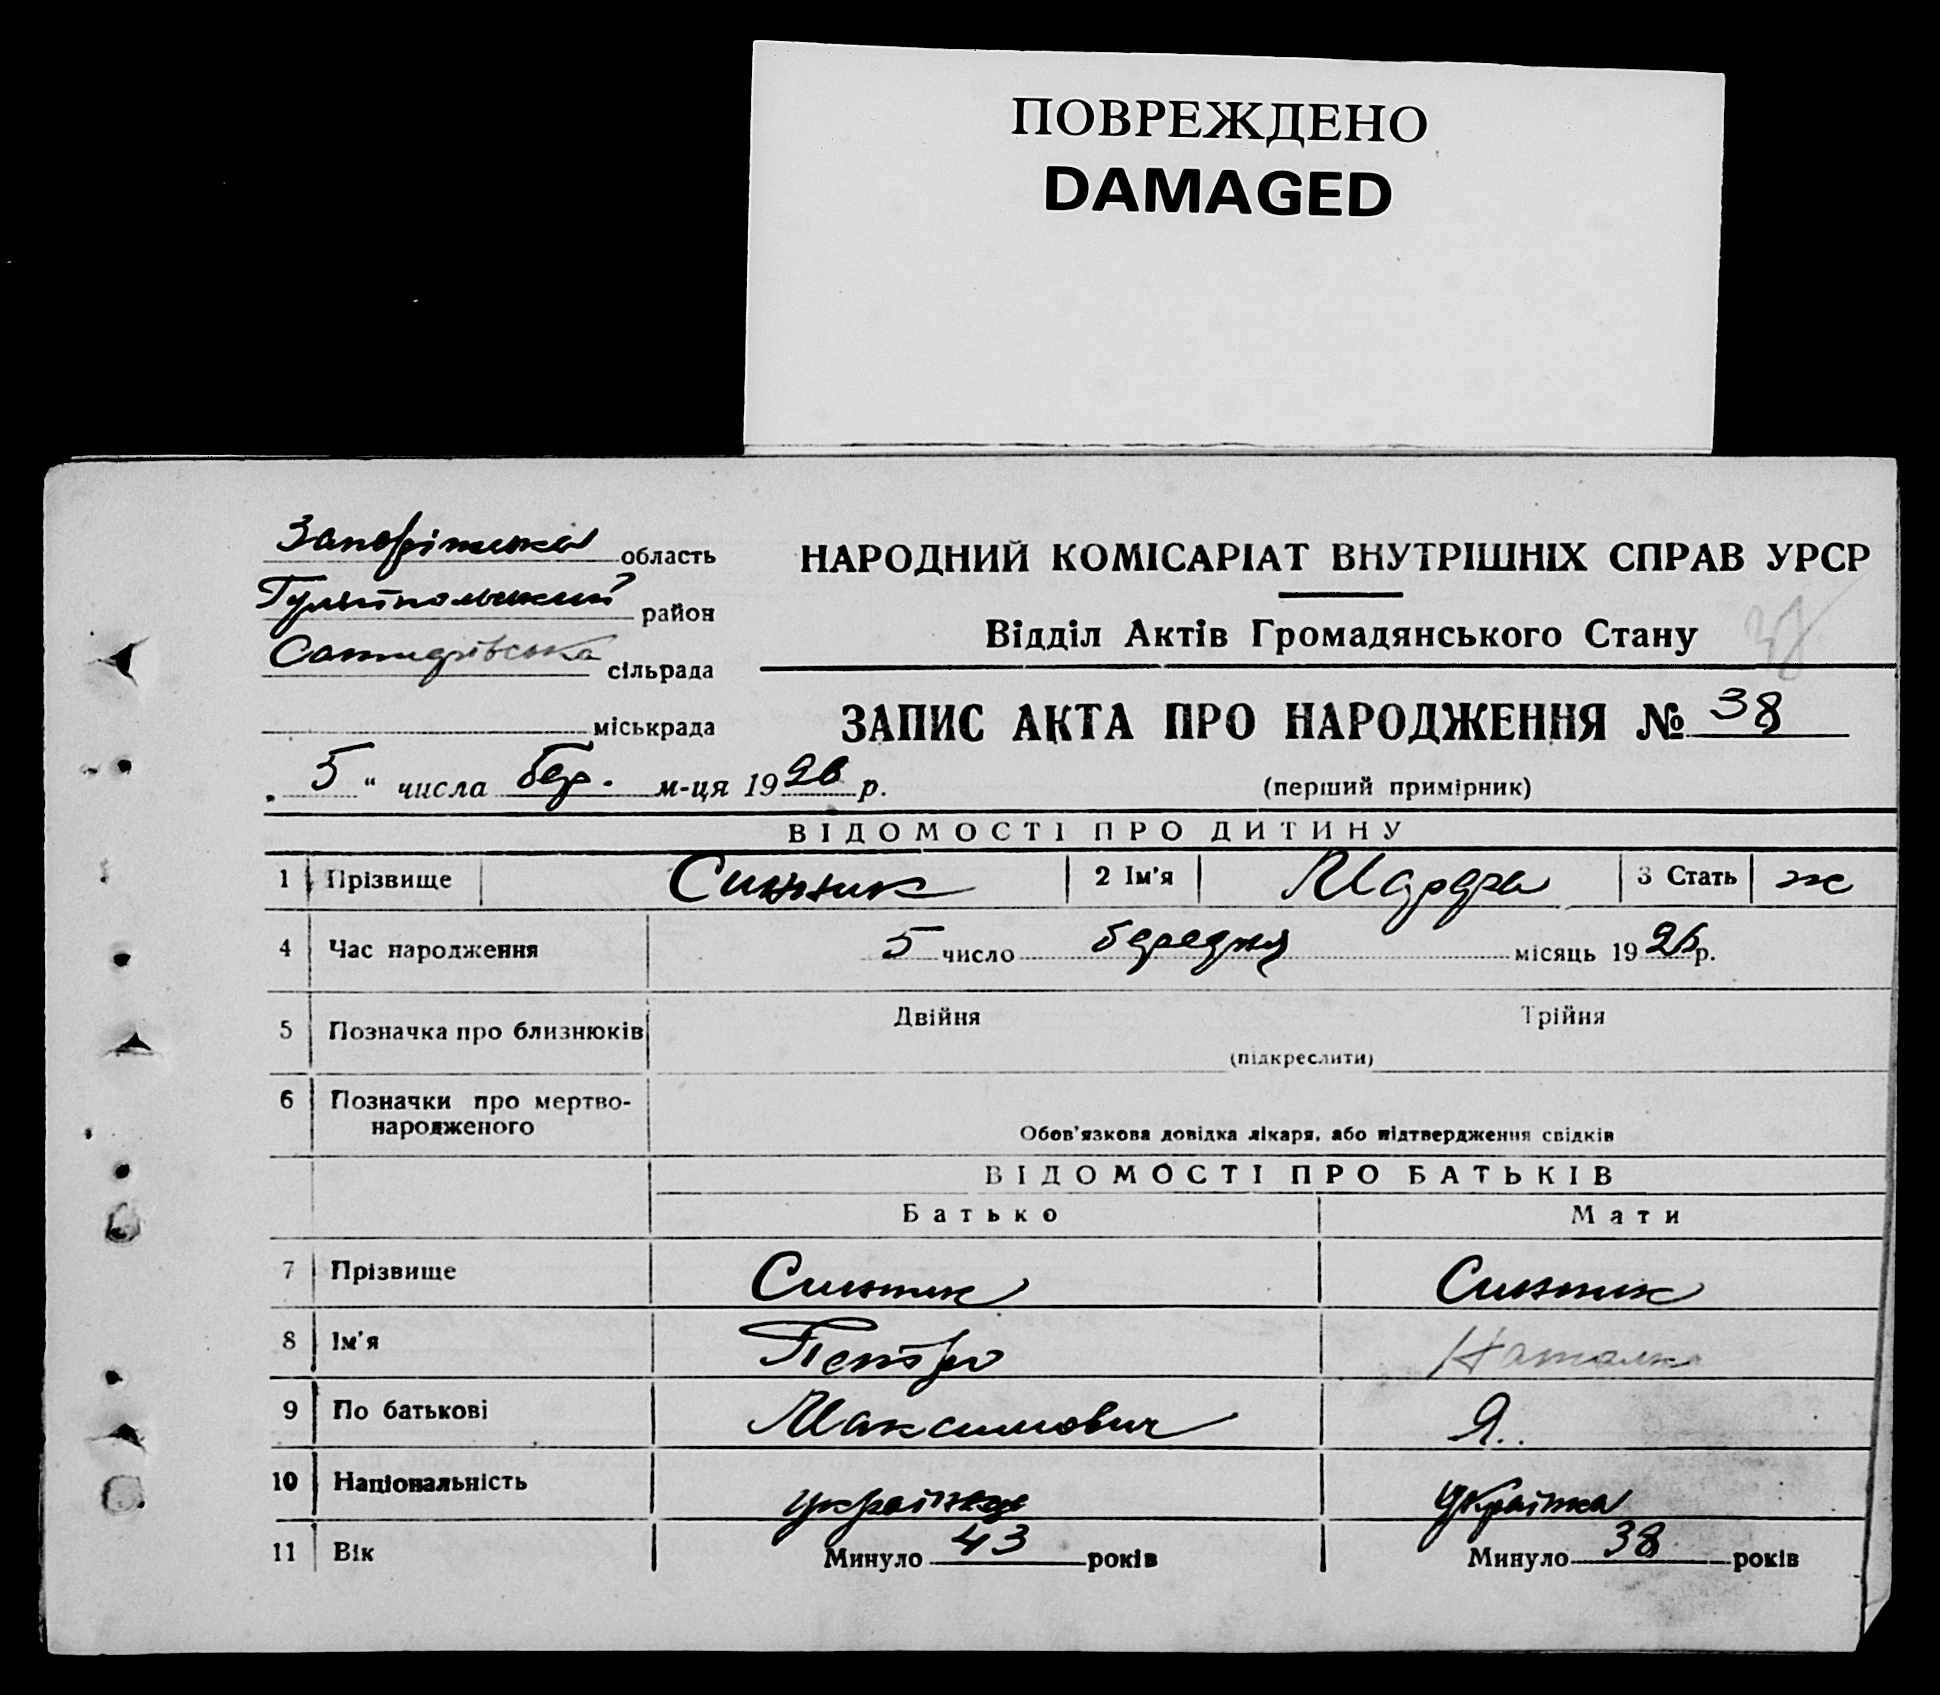 ПОВРЕЖДЕНО
DAMAGED
Запорізька область
Гуляйпольський район
сільрада
міськрада
НАРОДНИЙ КОМІСАРІАТ ВНУТРІШНІХ СПРАВ УРСР
Відділ Актів Громадянського Стану
ЗАПИС АКТА ПРО НАРОДЖЕННЯ № 38
(перший примірник)
„5" числа бер. м-ця 1926 р.
ВІДОМОСТІ ПРО ДИТИНУ
1 Прізвище Синник 2 Ім'я 3 Стать ж
4 Час народження 5 число березня місяць 1926 р.
5 Позначка про близнюків Двійня Трійня
(підкреслити)
6 Позначки про мертво-
народженого
Обов'язкова довідка лікаря, або підтвердження свідків
ВІДОМОСТІ ПРО БАТЬКІВ
Батько Мати
7 Прізвище Синник Синник
8 Ім'я Петро Наталка
9 По батькові Максимович Я..
10 Національність українець Українка
11 Вік Минуло 43 років Минуло 38 років